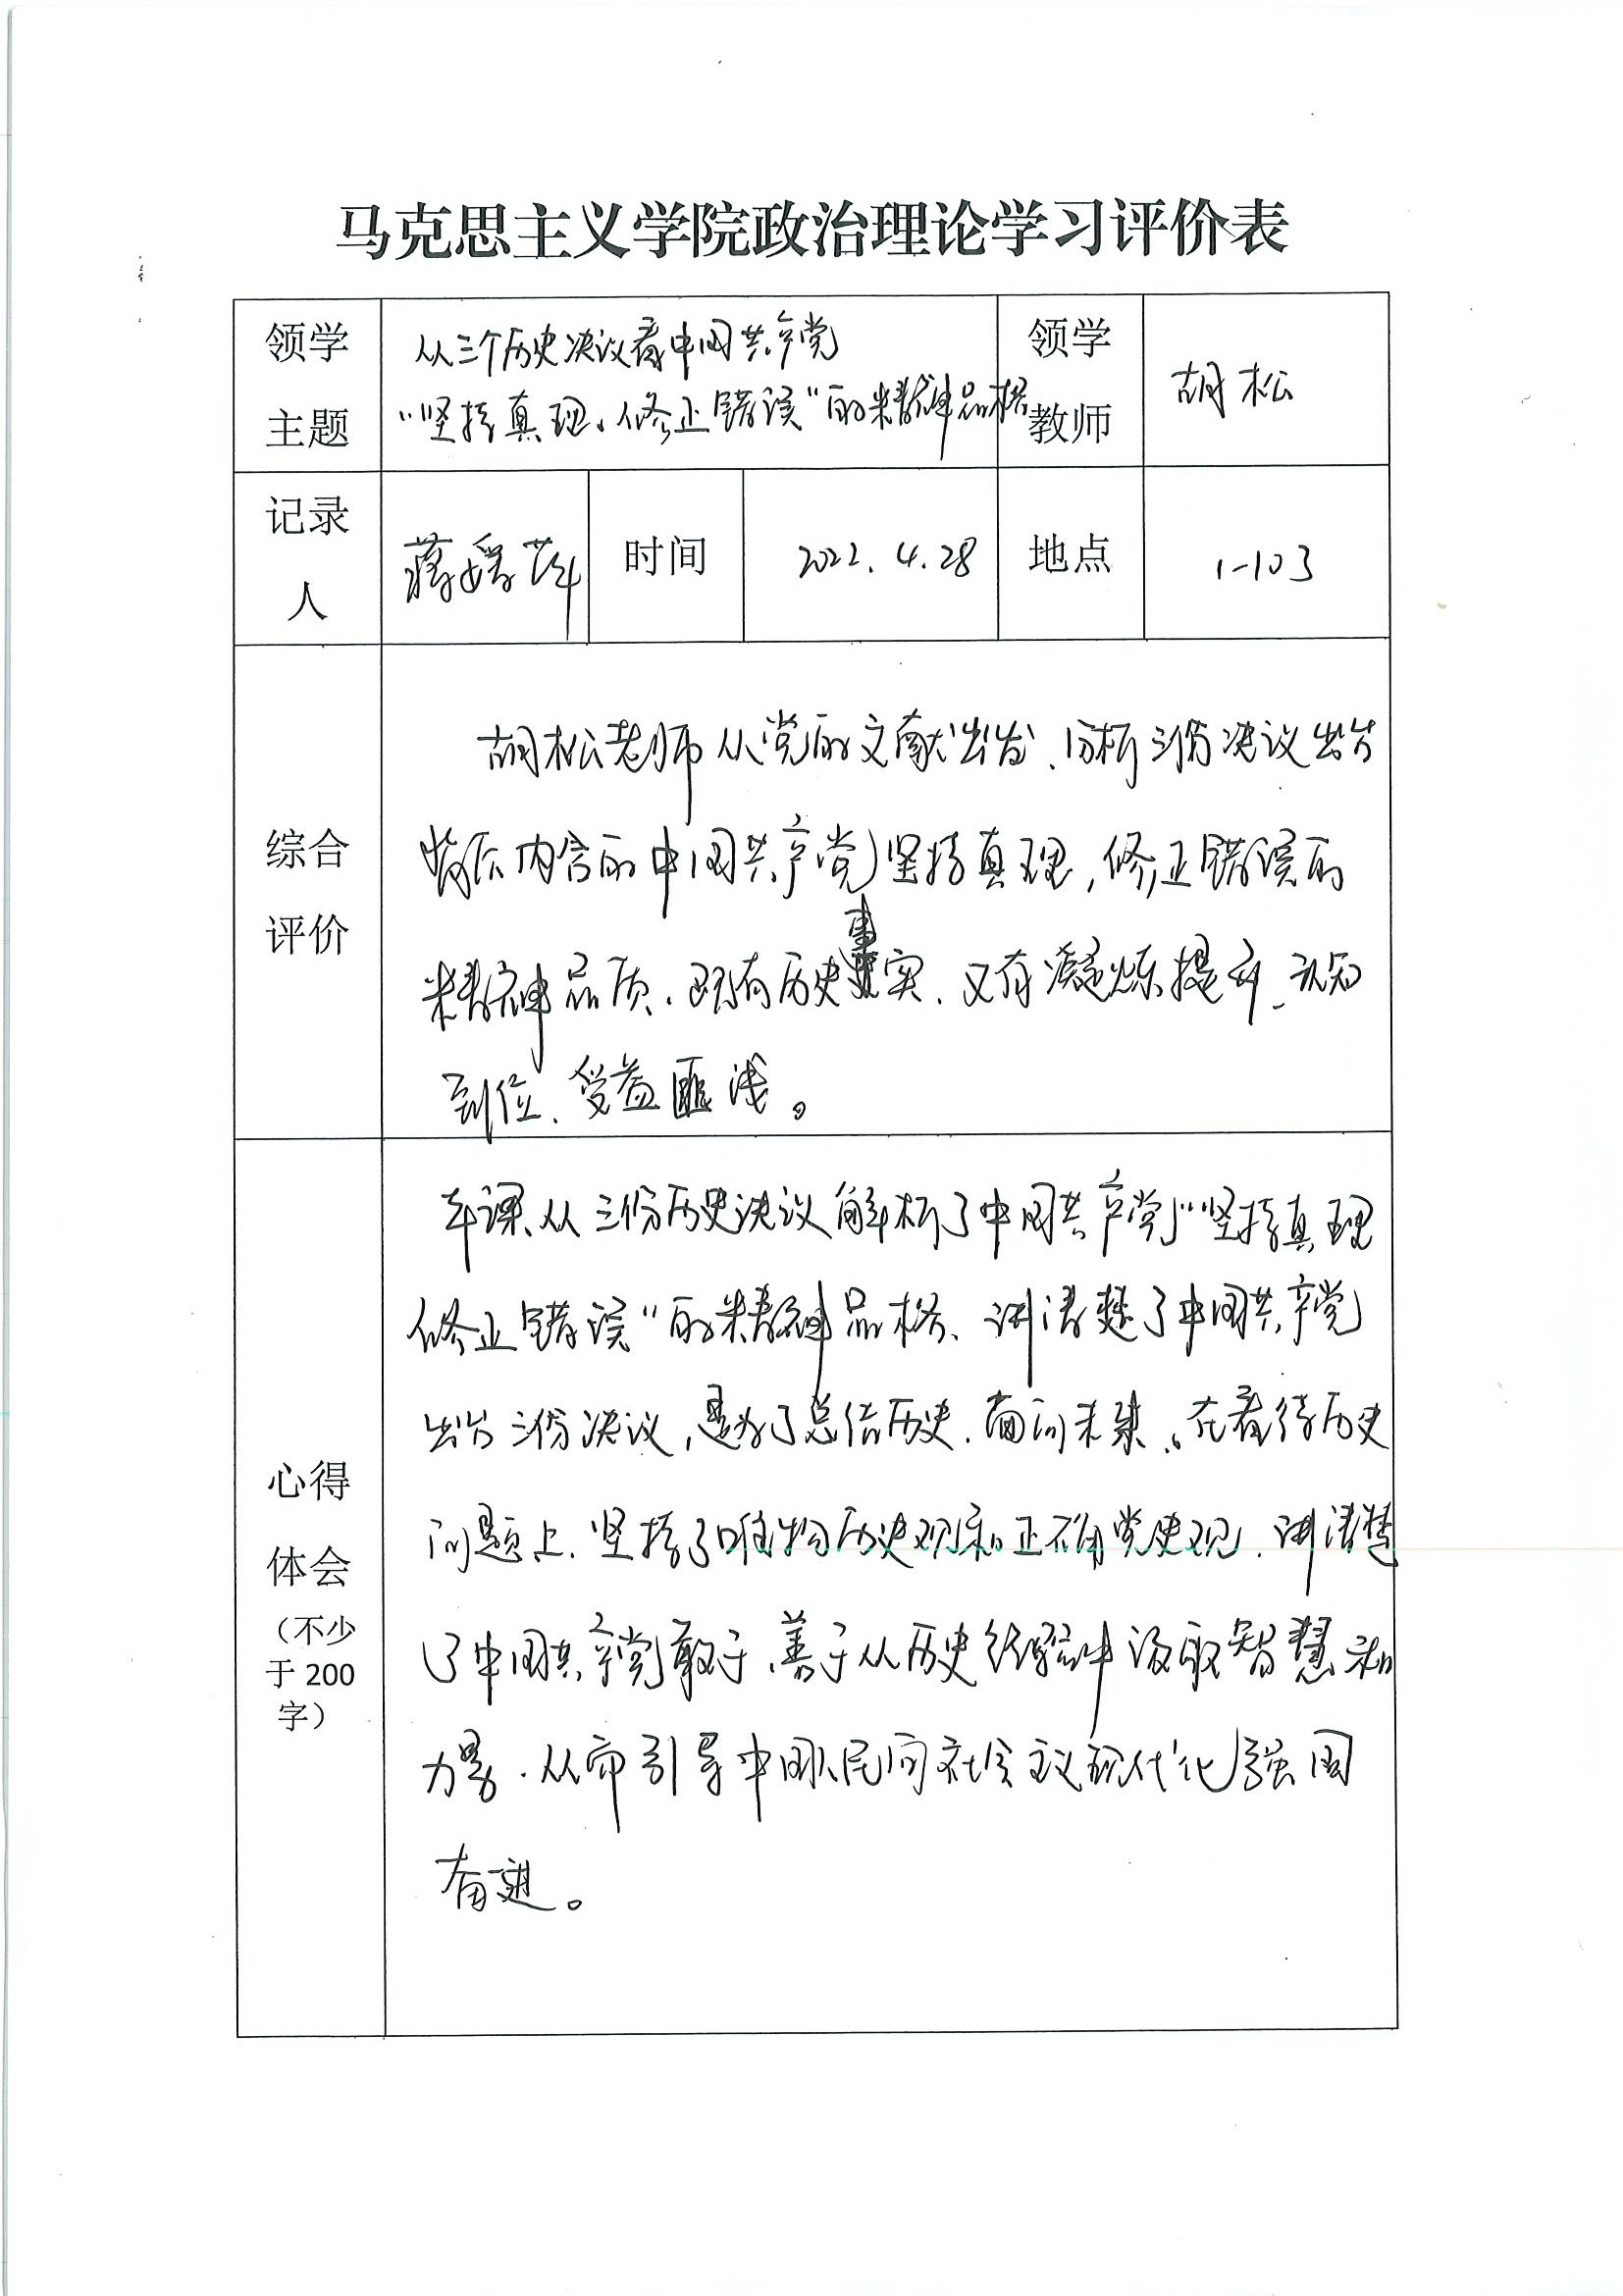 马克思主义学院政治理论学习评价表
领学主题
从三个历史决议看中国共产党
“坚持真理、修正错误”的精神品格
领学教师
胡松
记录人
蒋媛
时间
2022.4.28
地点
1-103
综合评价
胡松老师从党的文献出发、分析三份决议出台
背后内含的中国共产党坚持真理,修正错误的
精神品质、既有历史事实、又有凝炼提升、认知
到位、受益匪浅。
心得体会
(不少于200字)
本课、从三份历史决议解析了中国共产党“坚持真理
修正错误”的精神品格、讲清楚了中国共产党
出台三份决议,是为了总结历史、面向未来。在看待历史
问题上、坚持了唯物历史观和正确党史观、讲清楚
了中国共产党敢于、善于从历史经验中汲取智慧和
力量、从而引导中国人民向社会主义现代化强国
奋进。